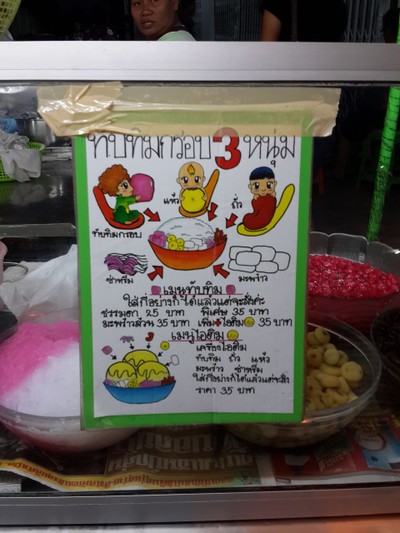 ทับทิมกรอบ 3 หนุ่ม
แห้ว
ถั่ว
ทับทิมกรอบ
ซ่าหริ่ม
มะพร้าว
เมนูทับทิม
ใส่กี่อย่างก็ได้แล้วแต่จะสั่งค่ะ
ธรรมดา 25 บาท พิเศษ 35 บาท
มะพร้าวอ่อน 35 บาท เพิ่ม+ไอติม 35 บาท
เมนูไอติม
เครื่องไอติม
ทับทิม ถั่ว แห้ว
มะพร้าว ซ่าหริ่ม
ใส่กี่อย่างก็ได้แล้วแต่จะสั่ง
ราคา 35 บาท